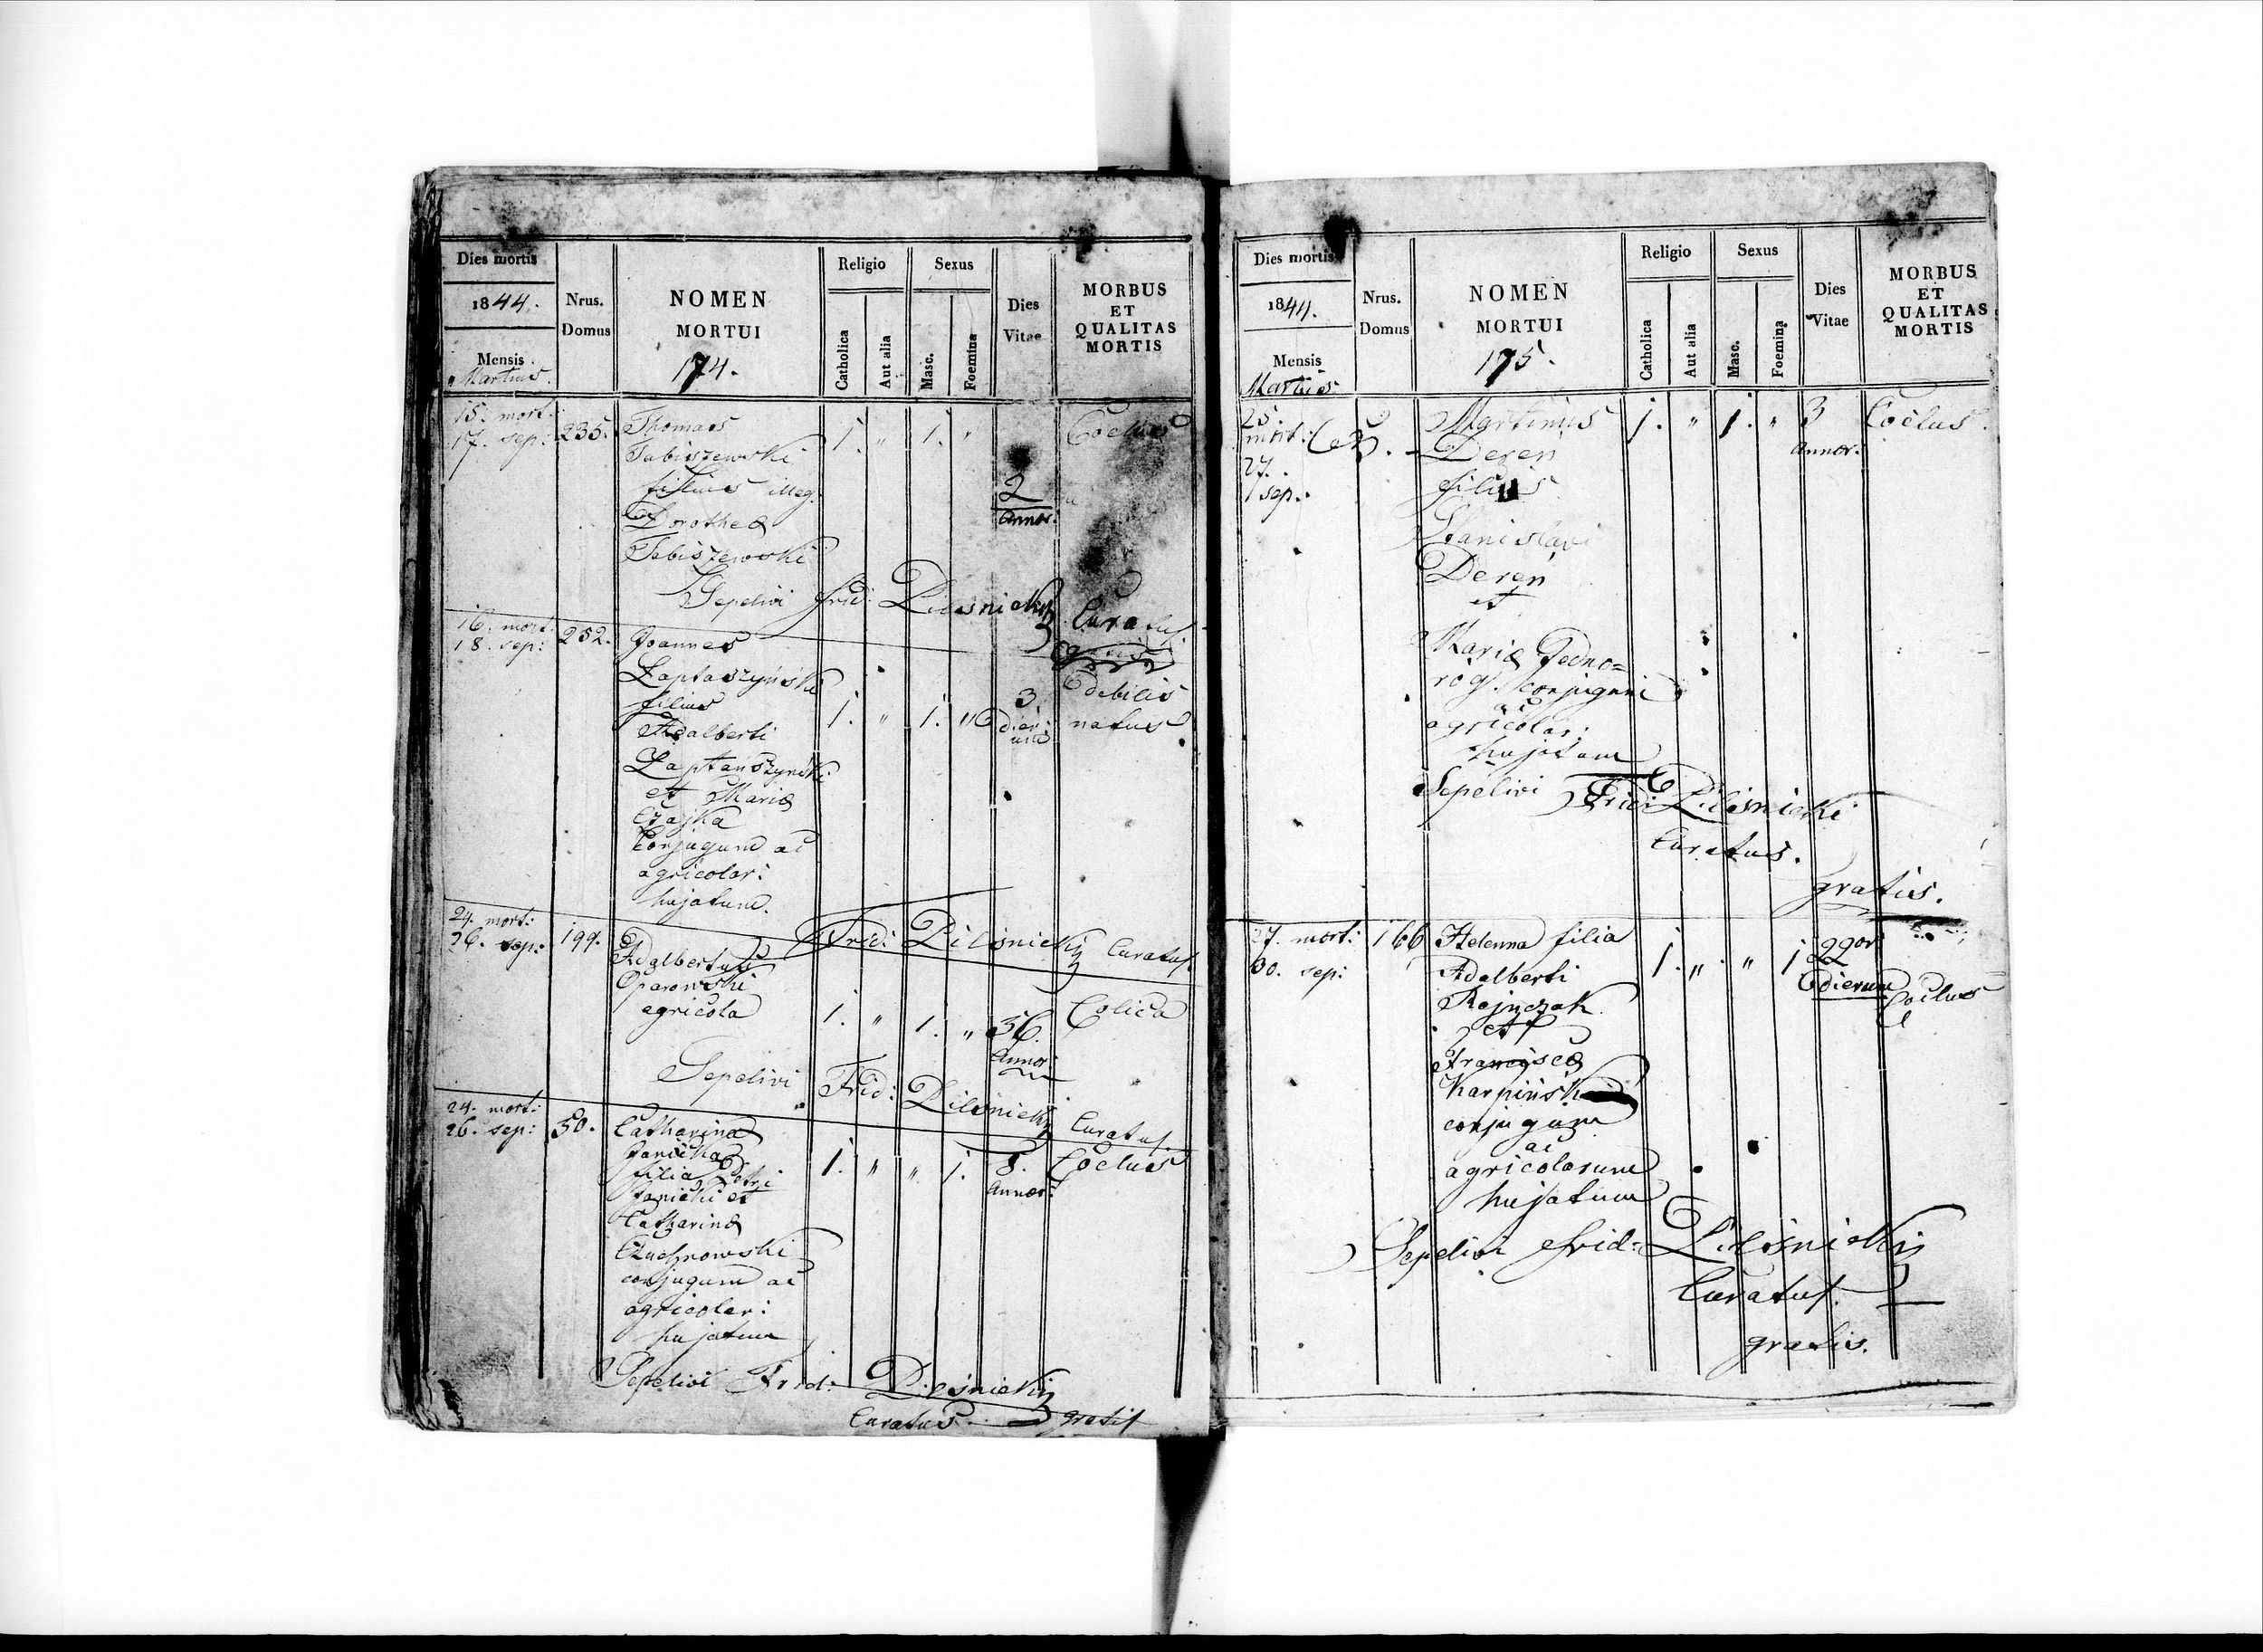 Dies mortis
1844.
Mensis
Martius.
Nrus.
Domus
NOMEN
MORTUI
174.
Religio
Catholica
Aut alia
Sexus
Masc.
Foemina
Dies
Vitae
MORBUS
ET
QUALITAS
MORTIS
15. mort.
17. sep: 235. Thomas 1. " 1. " Coclus
Tabiszewski
filius illeg. 2
Dorothea Annor:
Tabiszewski
Sepelivi Frid: Pilesnicki Curatus
16. mort.
18. sep: 252. Joannes
Łaptaszyński
filius 1. " 1. " 3 dier: debilis
Adalberti natus
Łaptaszyński
et Maria
Czajka
conjugum ac
agricolar:
hujatum.
Frid: Pilesnicki Curatus
24. mort:
26. sep: 199. Adalbertus
Oparowski
agricola 1. " 1. " 36. Colica
Annor:
Sepelivi Frid: Pilesnicki Curatus
24. mort:
26. sep: 50. Catharina
Janicka 1. " " 1. 8. Coclus
filia Petri Annor:
Janicki et
Catharina
conjugum ac
agricolar:
hujatum
Sepelivi Frid: Pilesnicki
Curatus gratis
Dies mortis
1844.
Mensis
Martius
Nrus.
Domus
NOMEN
MORTUI
175.
Religio
Catholica
Aut alia
Sexus
Masc.
Foemina
Dies
Vitae
MORBUS
ET
QUALITAS
MORTIS
25. Martinus 1. " 1. " 3 Coclus.
mort: Dereń Annor.
27. filius
sep. Stanislavi
Dereń
et
Maria Jedno=
róg conjugum
ac
agricolar:
hujatum
Sepelivi Frid: Pilesnicki
Curatus.
gratis.
27. mort: 166 Helenna filia
30. sep: Adalberti 1. " " 1 22or
Rojuczak dierum Coclus
et
Francisca
Karpińsk
conjugum
ac
agricolarum
hujatum
Sepelivi Frid: Pilesnicki
Curatus.
gratis.